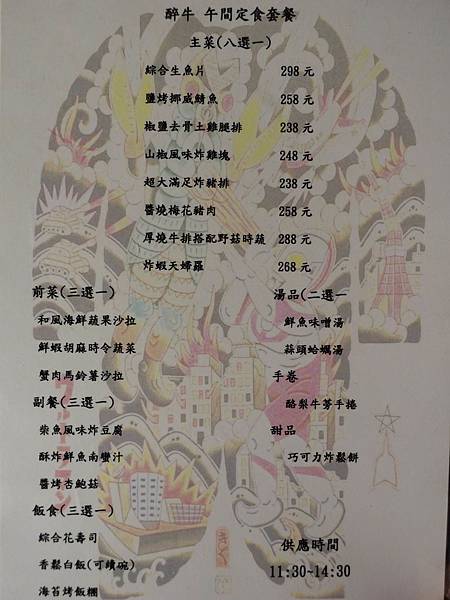 醉牛 午間定食套餐
主菜(八選一)
綜合生魚片 298 元
鹽烤挪威鯖魚 258 元
椒鹽去骨土雞腿排 238 元
山椒風味炸雞塊 248 元
超大滿足炸豬排 238 元
醬燒梅花豬肉 258 元
厚燒牛排搭配野菇時蔬 288 元
炸蝦天婦羅 268 元
前菜(三選一)
和風海鮮蔬果沙拉
鮮蝦胡麻時令蔬菜
蟹肉馬鈴薯沙拉
副餐(三選一)
柴魚風味炸豆腐
酥炸鮮魚南蠻汁
醬烤杏鮑菇
飯食(三選一)
綜合花壽司
香鬆白飯(可續碗)
海苔烤飯糰
湯品(二選一
鮮魚味噌湯
蒜頭蛤蠣湯
手卷
酪梨牛蒡手捲
甜品
巧克力炸鬆餅
供應時間
11:30~14:30